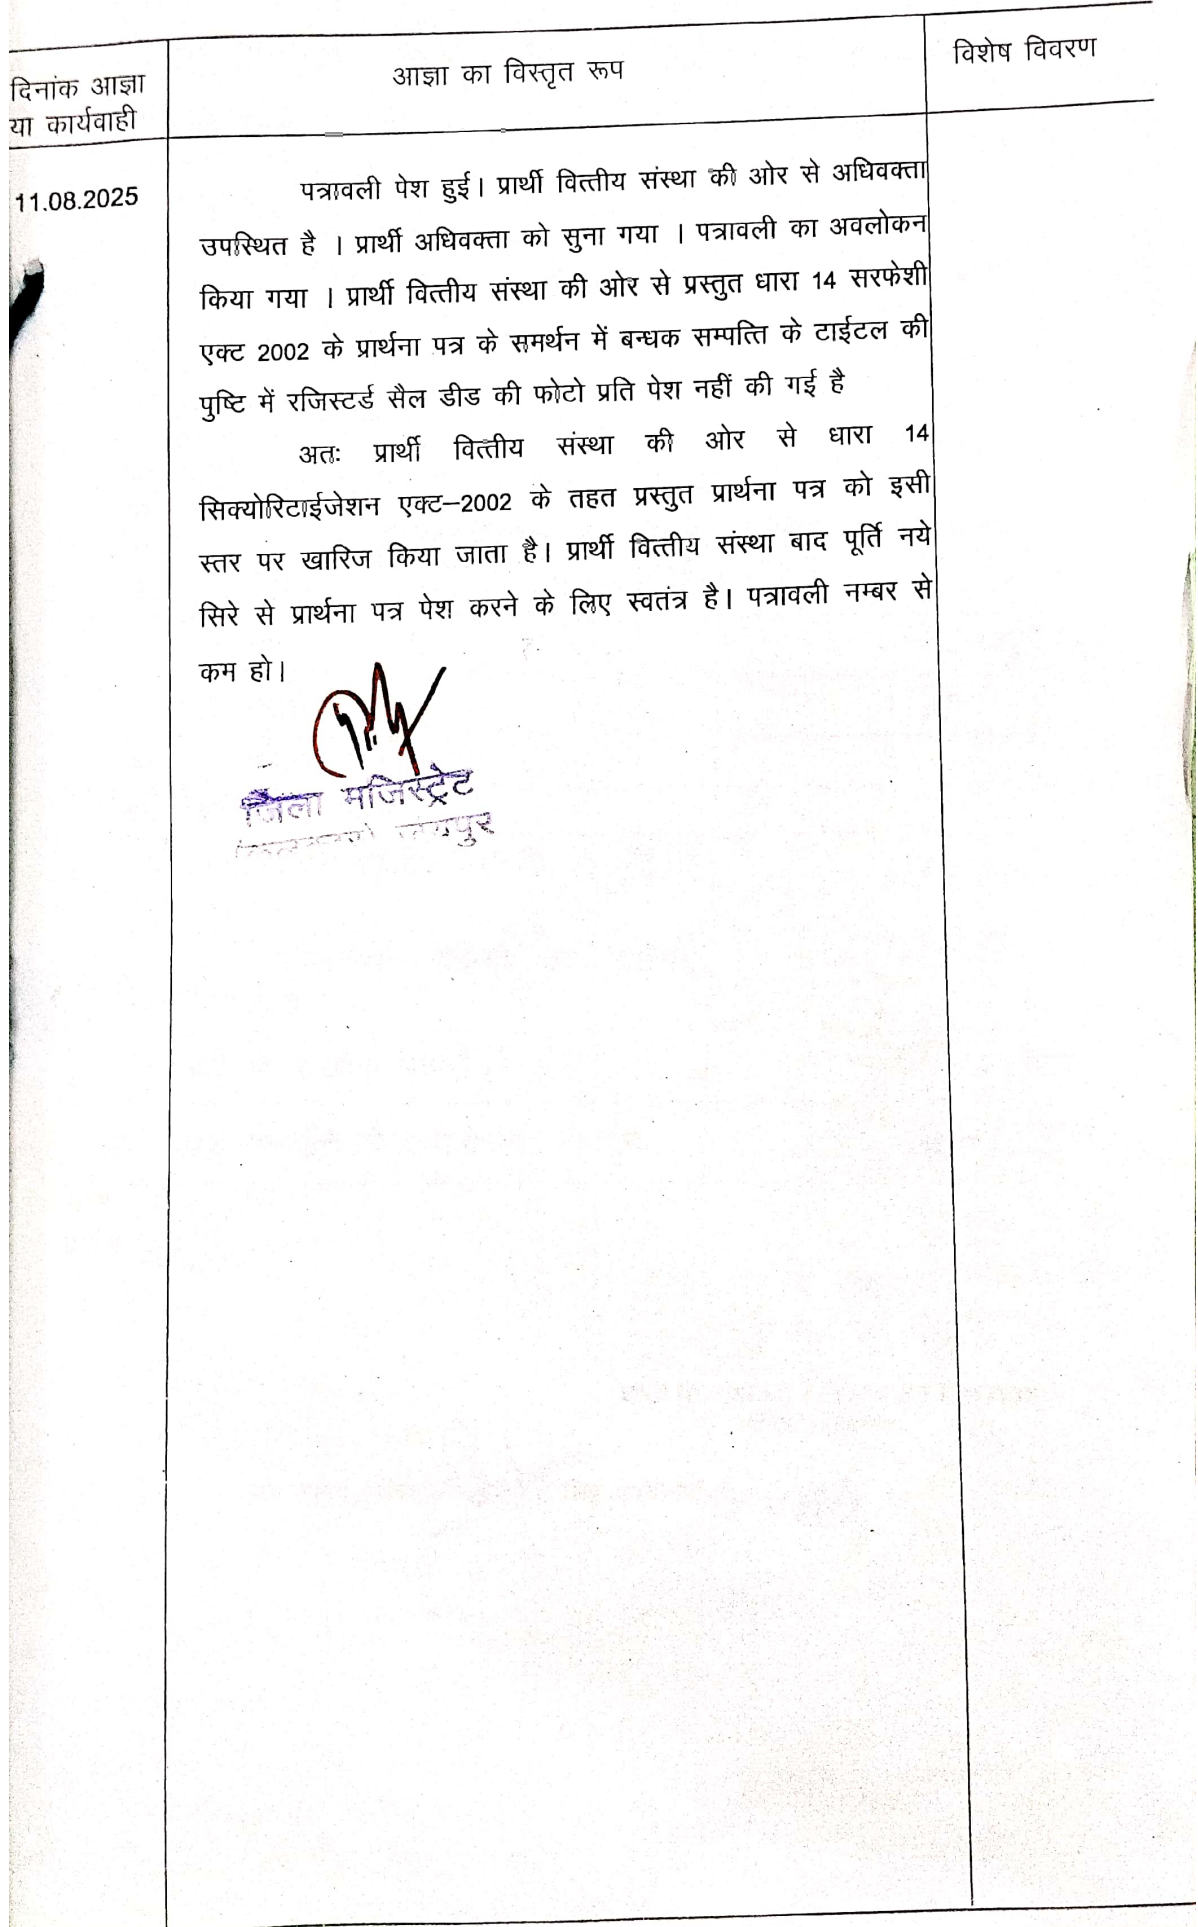 दिनांक आज्ञा
या कार्यवाही
आज्ञा का विस्तृत रूप
विशेष विवरण
11.08.2025
पत्रावली पेश हुई। प्रार्थी वित्तीय संस्था की ओर से अधिवक्ता
उपस्थित है । प्रार्थी अधिवक्ता को सुना गया । पत्रावली का अवलोकन
किया गया । प्रार्थी वित्तीय संस्था की ओर से प्रस्तुत धारा 14 सरफेशी
एक्ट 2002 के प्रार्थना पत्र के समर्थन में बन्धक सम्पत्ति के टाईटल की
पुष्टि में रजिस्टर्ड सैल डीड की फोटो प्रति पेश नहीं की गई है
अतः प्रार्थी वित्तीय संस्था की ओर से धारा 14
सिक्योरिटाईजेशन एक्ट–2002 के तहत प्रस्तुत प्रार्थना पत्र को इसी
स्तर पर खारिज किया जाता है। प्रार्थी वित्तीय संस्था बाद पूर्ति नये
सिरे से प्रार्थना पत्र पेश करने के लिए स्वतंत्र है। पत्रावली नम्बर से
कम हो।
जिला मजिस्ट्रेट